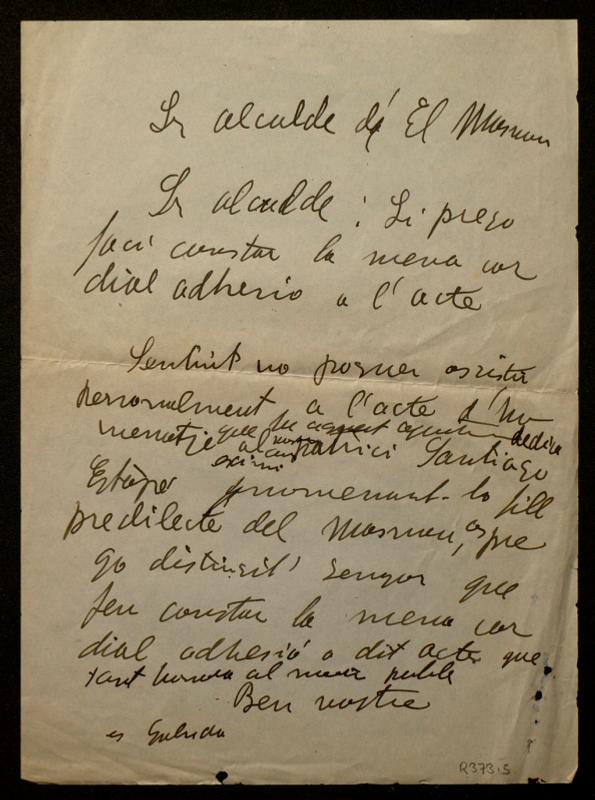 Sr alcalde d' El Masnou
Sr alcalde: Li prego
faci constar la meva cor
dial adhesio a l'acte
Sentint no poguer assistir
personalment a l'acte d'ho
menatje que fa aquest dedica
al
eximi patrici Santiago
Estapé nomenant-lo fill
predilecte del Masnou, os pre
go distingit senyor que
feu constar la meva cor
dial adhesió a dit acte que
tant honora al meu poble
Ben vostre
R373.5